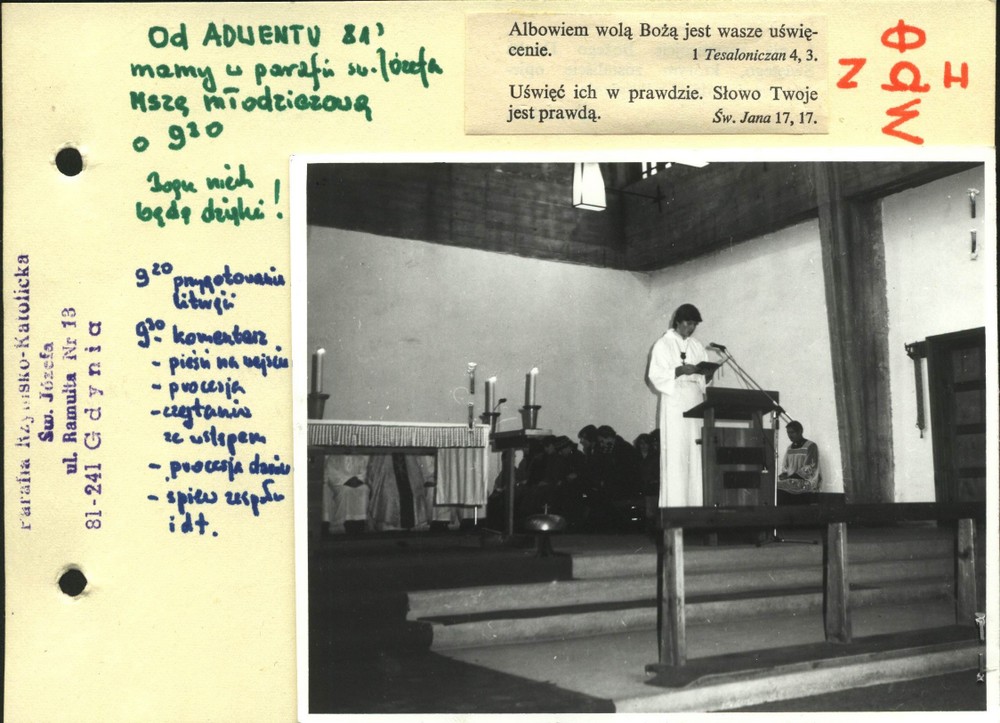 Od ADWENTU 81'
mamy w parafii św. Józefa
Mszę młodzieżową
o 9³⁰
Bogu niech
będą dzięki!
9²⁰ przygotowanie
liturgii
9³⁰ komentarz
- pieśń na wejście
- procesja
- czytanie
ze wstępem
- procesja darów
- śpiew zespołu
i dt.
Albowiem wolą Bożą jest wasze uświę-
cenie. 1 Tesaloniczan 4, 3.
Uświęć ich w prawdzie. Słowo Twoje
jest prawdą. Św. Jana 17, 17.
Parafia Rzymsko-Katolicka
Św. Józefa
ul. Ramułta Nr 13
81-241 Gdynia